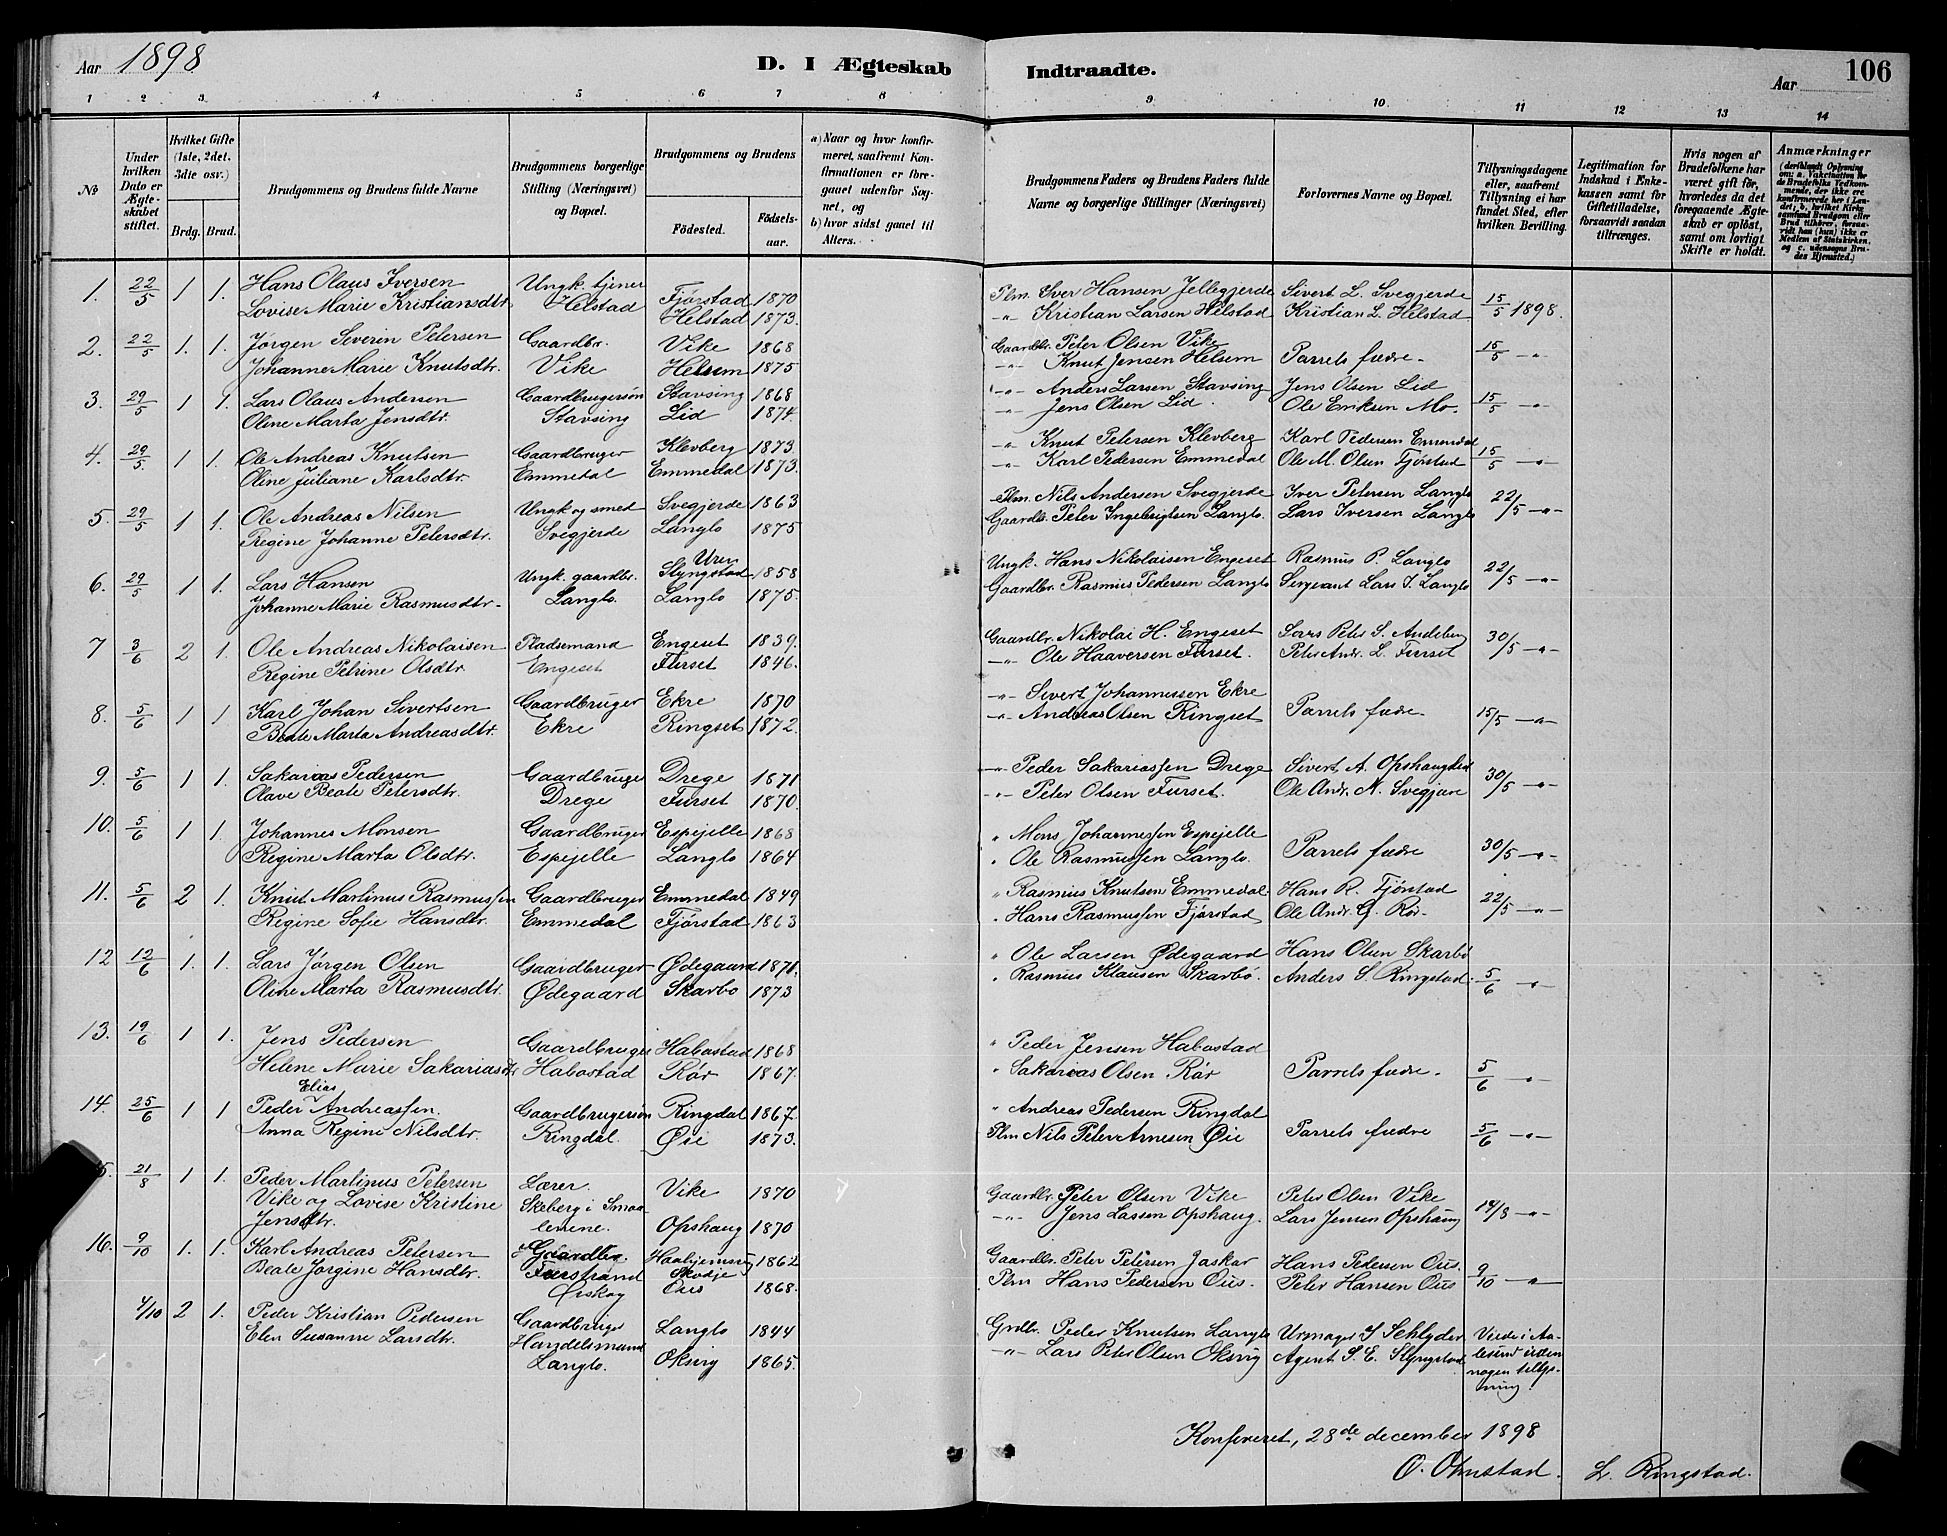 Aar 1898
D. I Ægteskab Indtraadte.
Aar
106
1 2 3 4 5 6 7 8 9 10 11 12 13 14
No
Under hvilken Dato er Ægteskabet stiftet.
Hvilket Gifte (1ste, 2det, 3die osv.)
Brdg. Brud.
Brudgommens og Brudens fulde Navne
Brudgommens borgerlige Stilling (Næringsvei) og Bopæl.
Brudgommens og Brudens
Födested.
Födselsaar.
a) Naar og hvor konfirmeret, saafremt Konfirmationen er foregaaet udenfor Sognet, og
b) hvor sidst gaaet til Alters.
Brudgommens Faders og Brudens Faders fulde Navne og borgerlige Stillinger (Næringsvei)
Forlovernes Navne og Bopæl.
Tillysningsdagene eller, saafremt Tillysning ei har fundet Sted, efter hvilken Bevilling.
Legitimation for Indskud i Enkekassen samt for Giftetilladelse, forsaavidt saadan tiltrænges.
Hvis nogen af Brudefolkene har været gift för, hvorledes da det foregaaende Ægteskab er oplöst, samt om lovligt Skifte er holdt.
Anmærkninger
(deriblandt Oplysning om: a. Vakcination for de Brudefolks Vedkommende, der ikke ere konfirmerede her i Landet; b. hvilket Kirkesamfund Brudgom eller Brud tilhörer, forsaavidt han (hun) ikke er Medlem af Statskirken, og c. udensogns Brudes Hjemsted.)
1. 22/5 1 1. Hans Olaus Iversen Ungk. tjener Fjørstad 1870 Plm. Iver Hansen Jellegjerde Sivert L. Svegjerde 15/5 1898.
Lovise Marie Kristiansdtr. Helstad Helstad 1873. -"- Kristian Larsen Helstad Kristian L. Helstad
2. 22/5 1. 1. Jørgen Severin Petersen Gaardbr. Vike 1868 Gaardbr. Peter Olsen Vike 15/5 -"-
Johanne Marie Knutsdtr. Vike Helsem 1875 -"- Knut Jensen Helsem Parrets fædre -
3. 29/5 1 1. Lars Olaus Andersen Gaardbrugersøn Stavsing 1868 -"- Anders Larsen Stavsing Jens Olsen Lid
Oline Marta Jensdtr. Stavsing Lid 1874. -"- Jens Olsen Lid. Ole Eriksen Mo. 15/5 -"-
4. 29/5 1 1. Ole Andreas Knutsen Gaardbruger Klevberg 1873. -"- Knut Petersen Klevberg Karl Pedersen Emmedal
Oline Juliane Karlsdtr. Emmedal Emmedal 1873. -"- Karl Pedersen Emmedal Ole M. Olsen Fjørstad 15/5 -"-
5. 29/5 1 1. Ole Andreas Nilsen Ungk og smed Svegjerde 1863 Plm. Nils Andersen Svegjerde Iver Petersen Langlo 22/5 -"-
Regine Johanne Petersdtr. Svegjerde Langlo 1875 Gaardb. Peter Ingebrigtsen Langlo. Lars Iversen Langlo
6. 29/5 1 1. Lars Hansen Ungk. gaardbr. Uren Slyngstad 1858 Ungk. Hans Nikolaisen Engeset Rasmus P. Langlo 22/5 -"-
Johanne Marie Rasmusdtr. Langlo. Langlo 1875. Gaardbr. Rasmus Pedersen Langlo Sergeant Lars J. Langlo
7 3/6 2 1. Ole Andreas Nikolaisen Pladsemand Engeset 1839. Gaardbr. Nikolai H. Engeset Lars Peter S. Andeberg 30/5 -"-
Regine Petrine Olsdtr. Engeset Furset 1846. -"- Ole Haaversen Furset. Peter Andr. L. Furset
8. 5/6 1 1 Karl Johan Sivertsen Gaardbruger Ekre 1870 -"- Sivert Johannessen Ekre
Beate Marta Andreasdtr. Ekre Ringset 1872. -"- Andreas Olsen Ringset Parrets fædre - 15/5 -"-
9. 5/6 1 1. Sakarias Pedersen Gaardbruger Drege 1871 -"- Peder Sakariassen Drege Sivert A. Opshaug
Olave Beate Petersdtr. Drege Furset 1870. -"- Peter Olsen Furset. Ole Andr. N. Svegjære 30/5 -"-
10. 5/6 1 1. Johannes Monsen Gaardbruger Espejelle 1868 " Mons Johannessen Espejelle
Regine Marta Olsdtr. Espejelle Langlo 1864 " Ole Rasmussen Langlo. Parrets fædre 30/5 -"-
11. 5/6 2 1. Knut Martinus Rasmussen Gaardbruger Emmedal 1849 " Rasmus Knutsen Emmedal Hans R. Fjørstad
Regine Sofie Hansdtr. Emmedal Fjørstad 1863 " Hans Rasmussen Fjørstad Ole Andr. G. Rør. 22/5 -"-
12 12/6 1. 1. Lars Jørgen Olsen Gaardbruger Ødegaard 1871. " Ole Larsen Ødegaard Hans Olsen Skarbø
Oline Marta Rasmusdtr. Ødegaard Skarbo 1873 " Rasmus Klausen Skarbø. Anders S. Ringstad 5/6 -"-
13. 19/6 1 1. Jens Pedersen Gaardbruger Habostad 1868 " Peder Jensen Habostad
Helene Marie Sakariasdtr Habostad Rør 1867. " Sakarias Olsen Rør Parrets fædre - 5/6 -"-
14. 25/6 1 1 Peder Elias Andreassen. Gaardbrugersøn Ringdal 1867. " Andreas Pedersen Ringdal
Anna Regine Nilsdtr. Ringdal. Øie 1873. Plm Nils Peter Arnesen Øie Parrets fædre 5/6 -"-
5. 21/8 1 1. Peder Martinus Petersen Lærer. Vike 1870 Gaardbr. Peter Olsen Vike Peter Olsen Vike
Vike og Lovise Kristine Skeberg i Smaalenene. Opshaug 1870 -"- Jens Lassen Opshaug. Lars Jensen Opshaug 14/8 -"-
Jensdtr.
16. 9/10 1. 1. Karl Andreas Petersen Gaardbr. Haahjemsvig Skodje 1862 Gaardbr. Peter Petersen Jaskar Hans Pedersen Ous. 9/10 -"-
Beate Jørgine Hansdtr. Furstrand Ørskog Ous 1868. Plm Hans Pedersen Ous. Peter Hansen Ous
4/10 2 1. Peder Kristian Pedersen Gaardbruger Langlo 1844 Grdbr. Peder Knutsen Langlo Urmager S Schlyder Viede i Aalesund uden nogen tillysning.
Elen Susanne Larsdtr. Handelsmand Langlo. Oksvig 1865. -"- Lars Peter Olsen Oksvig Agent S. E. Slyngstad
Konfereret, 28de december 1898
O. Olmstad. L. Ringstad.